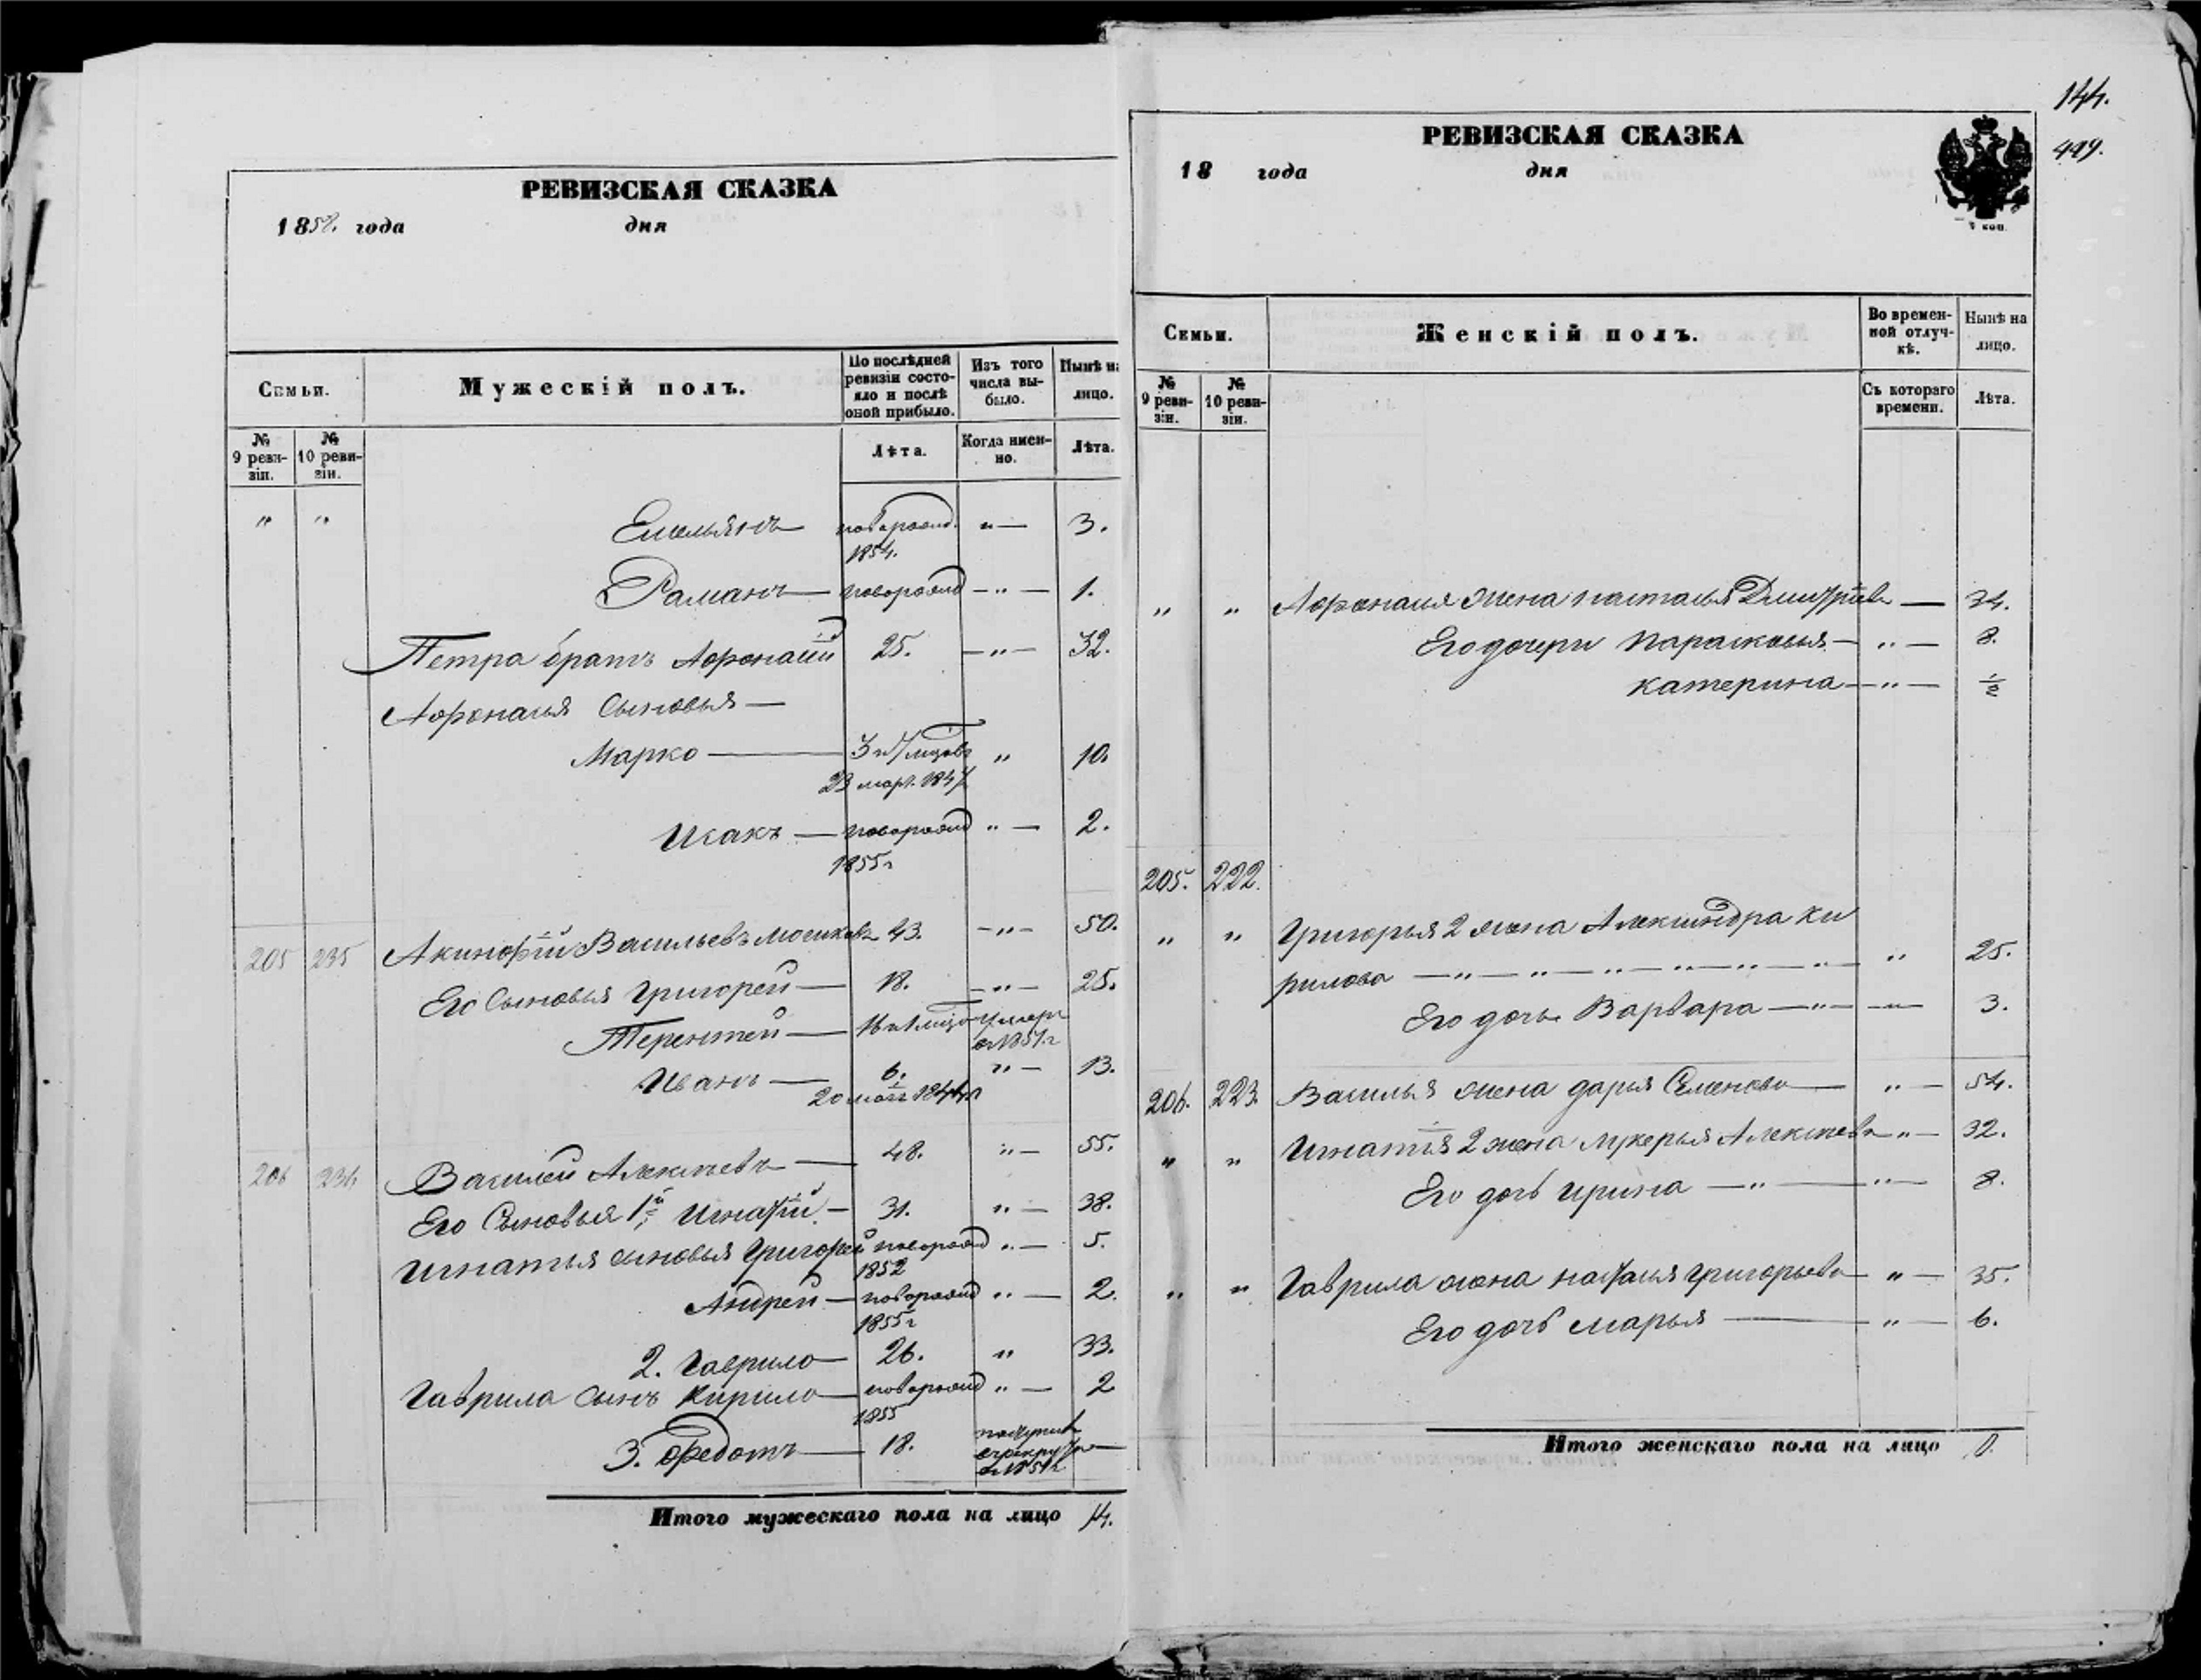 РЕВИЗСКАЯ СКАЗКА
1858. года дня
Семьи.
Мужескій полъ.
По послѣдней ревизіи состояло и послѣ оной прибыло.
Изъ того числа выбыло.
Нынѣ на лицо.
№ 9 ревизіи.
№ 10 ревизіи.
Лѣта.
Когда имен-но.
Лѣта.
" " Емельянъ новорожд. " — 3.
1854.
Романъ — новорожд — " — 1.
Петра братъ Афонасій 25. — " — 32.
Афонасья Сыновья —
Марко — 10.
23 март. 1847
Исакъ — новорожд " — 2.
1855 г
205 235 Акинфій Васильевъ 43. — " — 50.
Его Сыновья Григорей — 18. — " — 25.
Терентей — умеръ
в 1851 г
Иванъ — 6. " — 13.
206 236 Василей Алексѣевъ — 48. " — 55.
Его Сыновья 1й Игнатій — 31. " — 38.
Игнатья сыновья Григорей новорожд " — 5.
1852
Андрей — новорожд " — 2.
1855 г
2. Гаврило — 26. " 33.
Гаврила Сынъ Кирило — новорожд " — 2
1855
3. Федотъ — 18.
Итого мужескаго пола на лицо 14.
144.
449.
РЕВИЗСКАЯ СКАЗКА
18 года дня
Семьи.
Женскій полъ.
Во времен-ной отлуч-кѣ.
Нынѣ на лицо.
№ 9 реви-зіи.
№ 10 реви-зіи.
Съ котораго времени.
Лѣта.
" " Афонасья жена Настасья Дмитріева — 34.
Его дочери Парасковья — " — 8.
Катерина — " — ½
205. 222.
" " Григорья 2 жена Александра Ки
рилова — " — " — " — " — " — " — " 25.
Его дочь Варвара — " — " — 3.
206. 223. Василья жена Дарья Семенова — " — 54.
" " Игнатія 2 жена Лукерья Алексѣева " — 32.
Его дочь Ирина — " — " — 8.
" " Гаврила жена Наталья Григорьева — " — 35.
Его дочь Марья — " — 6.
Итого женскаго пола на лицо